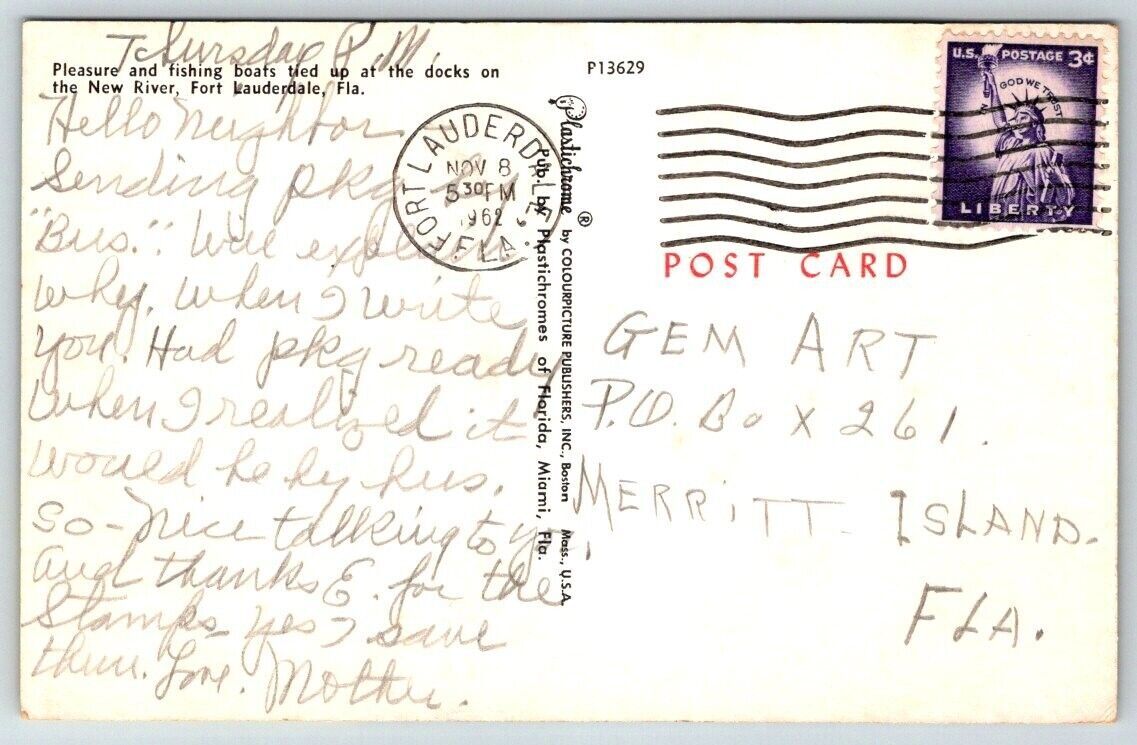 Thursday P.M.
Pleasure and fishing boats tied up at the docks on
the New River, Fort Lauderdale, Fla.
Hello Neighbor
Sending pkg
"Bus." Will explain
why, when I write
you. Had pkg ready
when I realized it
would be by bus.
So-nice talking to you,
and thanks E. for the
stamps - yes I save
them. Love. Mother.
P13629
FORT LAUDERDALE
NOV 8
530PM
1962
FLA.
Plastichrome ® by COLOURPICTURE PUBLISHERS, INC., Boston Mass., U.S.A.
Pub. by Plastichromes of Florida, Miami, Fla.
U.S. POSTAGE 3¢
IN GOD WE TRUST
LIBERTY
POST CARD
GEM ART
P.O. Box 261.
MERRITT ISLAND.
FLA.